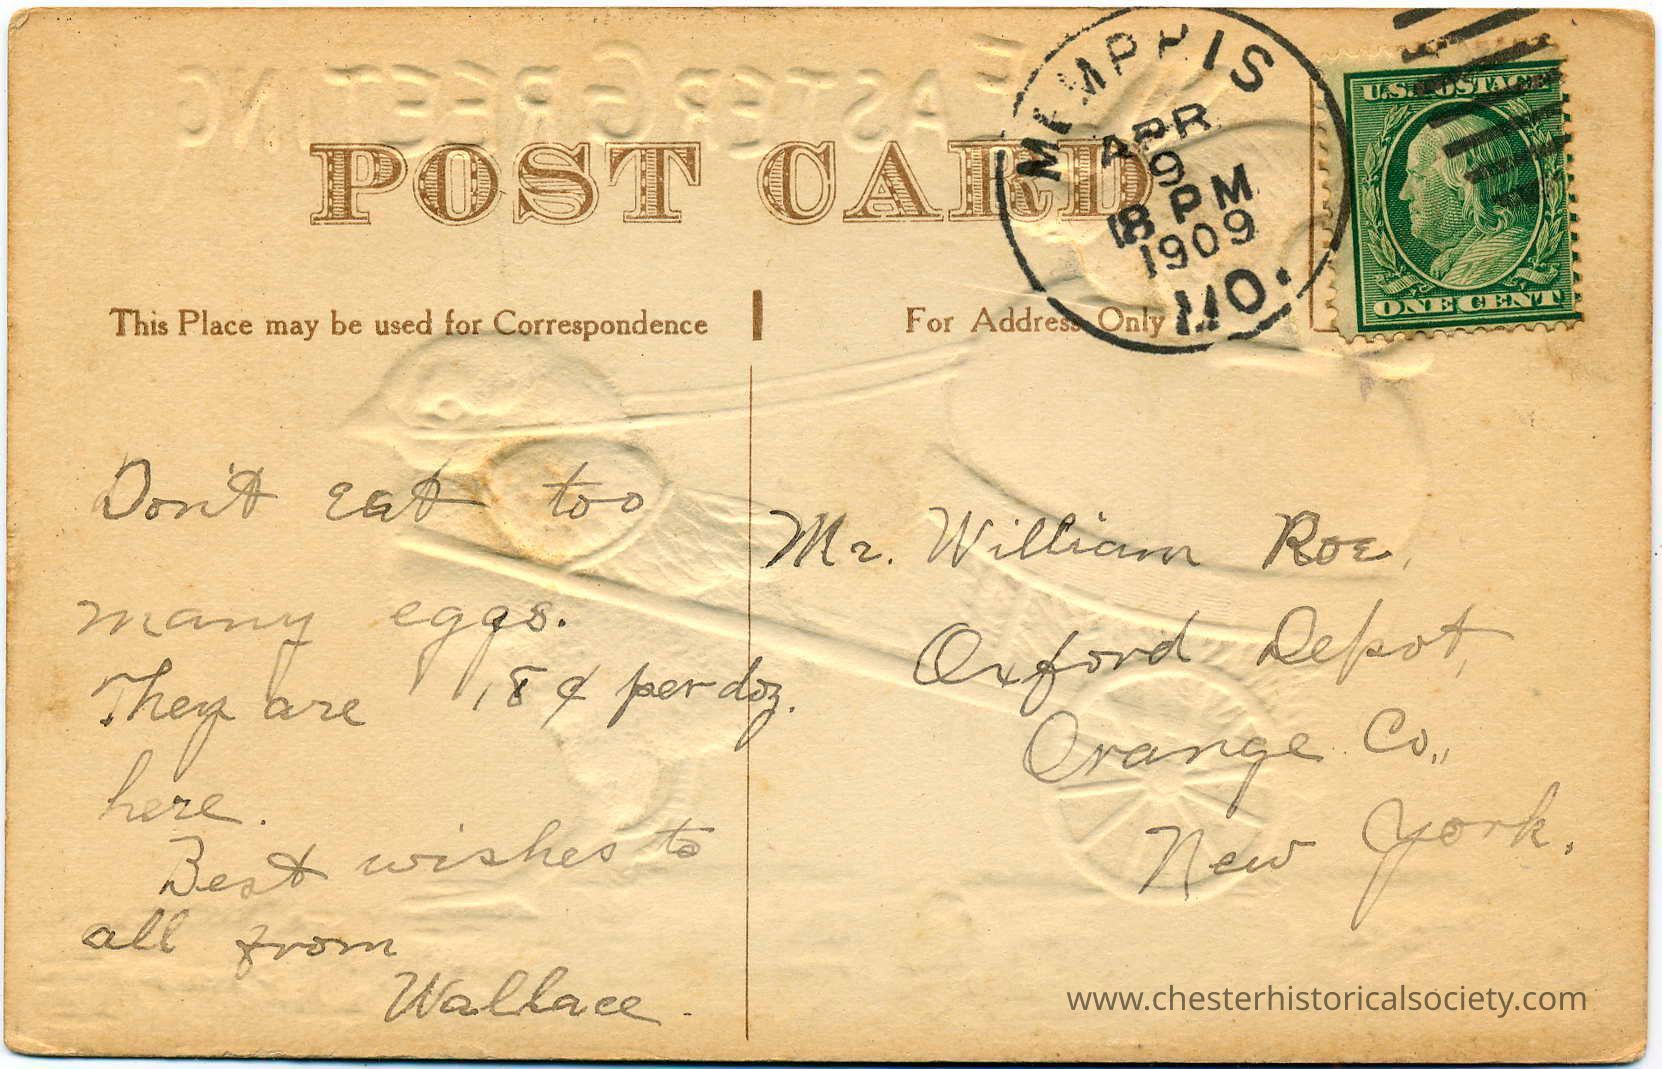 EASTER GREETING
POST CARD
MEMPHIS
APR
9
8 PM
1909
MO.
U.S. POSTAGE
ONE CENT
This Place may be used for Correspondence
For Address Only
Don't eat too
many eggs.
They are 18 ¢ per doz.
here.
Best wishes to
all from
Wallace.
Mr. William Roe,
Oxford Depot,
Orange Co.,
New York.
www.chesterhistoricalsociety.com